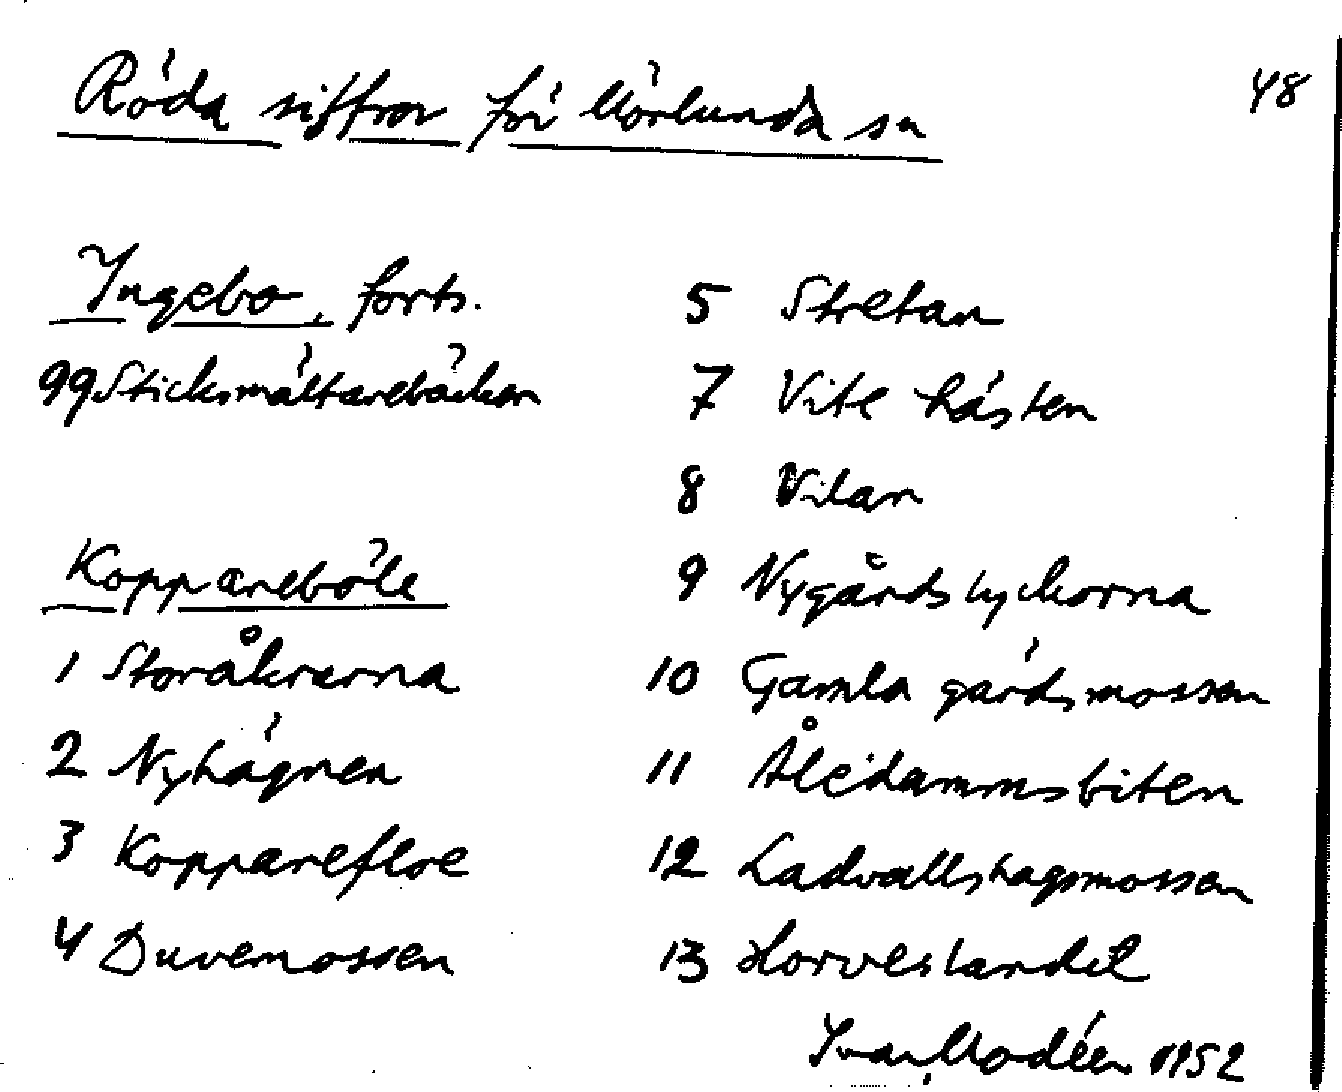 Röda siffror för Mörlunda sn
48
Ingebo, forts.
99 Sticksmåltarebäcken
Koppareböle
1 Storåkrarna
2 Nyhägnen
3 Kopparefloe
4 Duvemossen
5 Stretan
7 Vite hästen
8 Vilan
9 Nygårdslyckorna
10 Gamla gårdsmossen
11 Åledammsbiten
12 Ladvallshagsmossen
13 Horveslandet
Ivar Modéer 1952